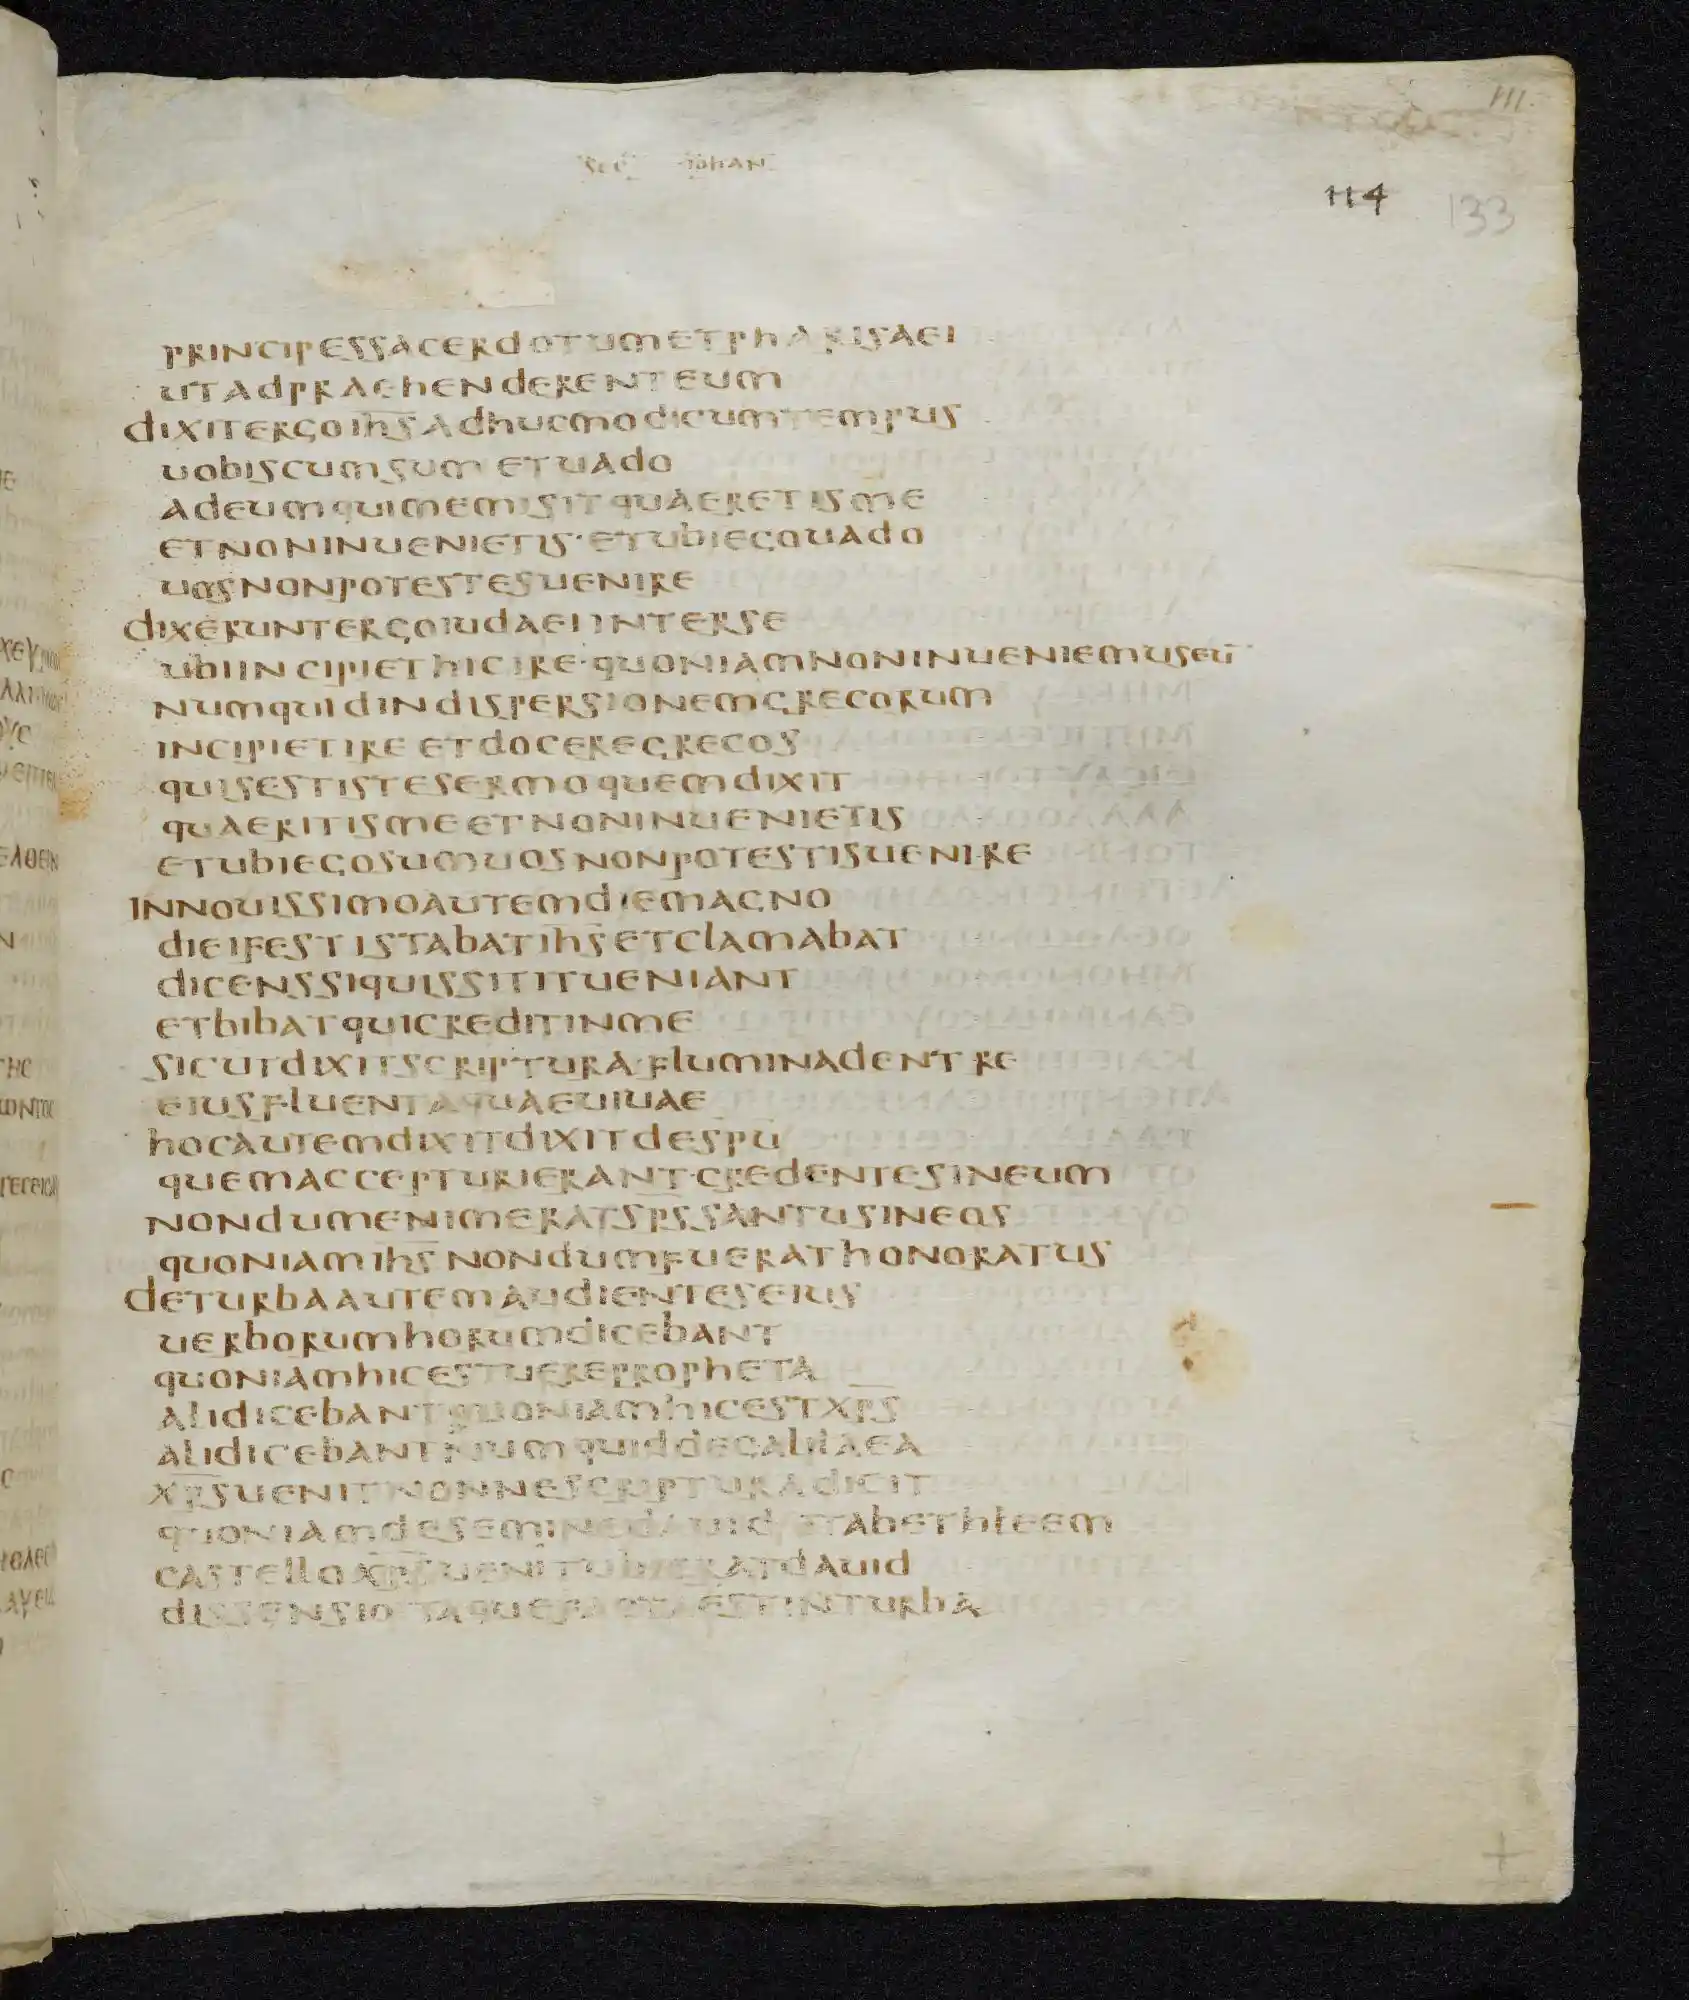 III
sec iohan
114 133
principes sacerdotum et pharisaei
ut adpraehenderent eum
dixit ergo ih̅s̅ adhuc modicum tempus
uobiscum sum et uado
ad eum qui me misit quaeretis me
et non inuenietis · et ubi ego uado
uos non potestes uenire
dixerunt ergo iudaei inter se
ubi incipiet hic ire · quoniam non inueniemus eu̅
numquid in dispersionem grecorum
incipiet ire et docere grecos
quis est iste sermo quem dixit
quaeritis me et non inuenietis
et ubi ego sum uos non potestis uenire
in nouissimo autem die magno
diei festi stabat ih̅s̅ et clamabat
dicens si quis sitit ueniant
et bibat qui credit in me
sicut dixit scriptura · flumina de ntre
eius fluent aquae uiuae
hoc autem dixit dixit de sp̅u̅
quem accepturi erant · credentes in eum
nondum enim erat s̅p̅s̅ santus in eos
quoniam ih̅s̅ nondum fuerat honoratus
de turba autem audientes eius
uerborum horum dicebant
quoniam hic est uere propheta
ali dicebant quoniam hic est x̅p̅s̅
ali dicebant numquid de galilaea
x̅p̅s̅ uenit nonne scriptura dicit
quoniam de semine dauid et a bethleem
castello x̅p̅s̅ uenit ubi erat dauid
dissensio itaque facta est in turba